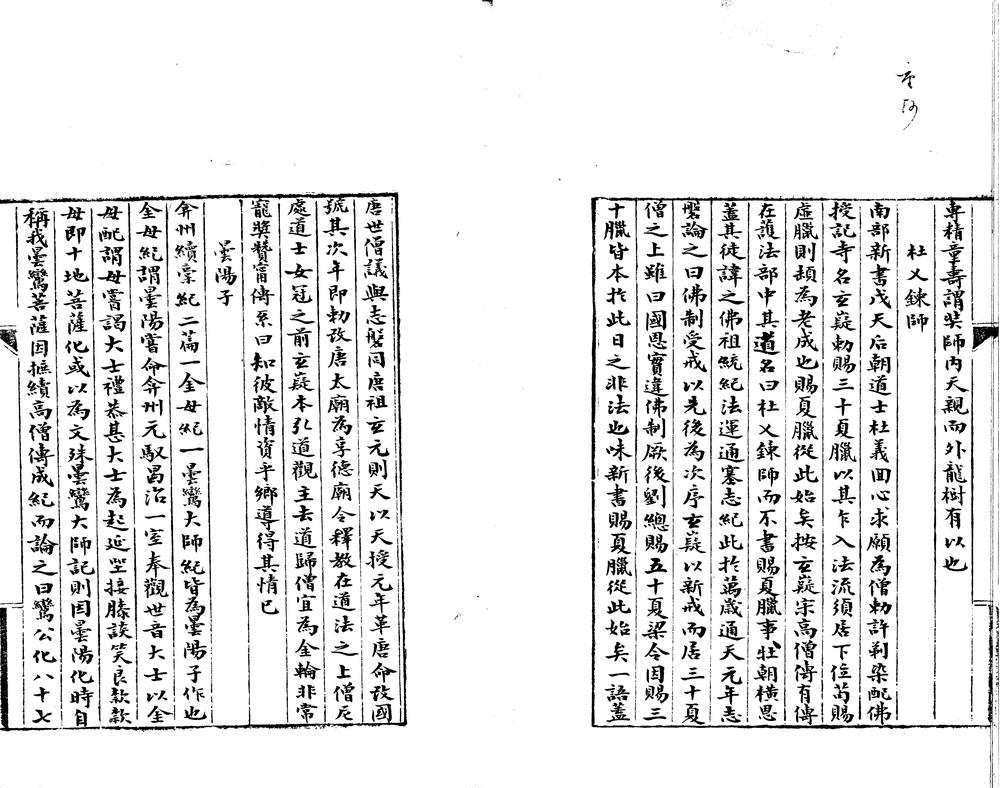 專精童壽謂奘師內天親而外龍樹有以也
杜乂鍊師
南部新書戊天后朝道士杜義回心求願為僧勅許剃染配佛
授記寺名玄嶷勅賜三十夏臘以其乍入法流須居下位苟賜
虛臘則頓為老成也賜夏臘從此始矣按玄嶷宋高僧傳有傳
在護法部中其道名曰杜乂鍊師而不書賜夏臘事壯朝橫恩
蓋其徒諱之佛祖統紀法運通塞志紀此於萬歲通天元年志
磐論之曰佛制受戒以先後為次序玄嶷以新戒而居三十夏
僧之上雖曰國恩實違佛制厥後劉總賜五十夏梁令因賜三
十臘皆本於此日之非法也味新書賜夏臘從此始矣一語蓋
唐世僧議與志磐同唐祖玄元則天以天授元年革唐命改國
號其次年即勅改唐太廟為享德廟令釋教在道法之上僧尼
處道士女冠之前玄嶷本弘道觀主去道歸僧宜為金輪非常
寵獎贊甯傳系曰知彼敵情資乎鄉導得其情已
曇陽子
弇州續稾紀二篇一金母紀一曇鸞大師紀皆為曇陽子作也
金母紀謂曇陽嘗命弇州元馭昌治一室奉觀世音大士以金
母配謂母嘗謁大士禮恭甚大士為起延坐接膝談笑良款款
母即十地菩薩化或以為文殊曇鸞大師記則因曇陽化時自
稱我曇鸞菩薩因摭續高僧傳成紀而論之曰鸞公化八十七